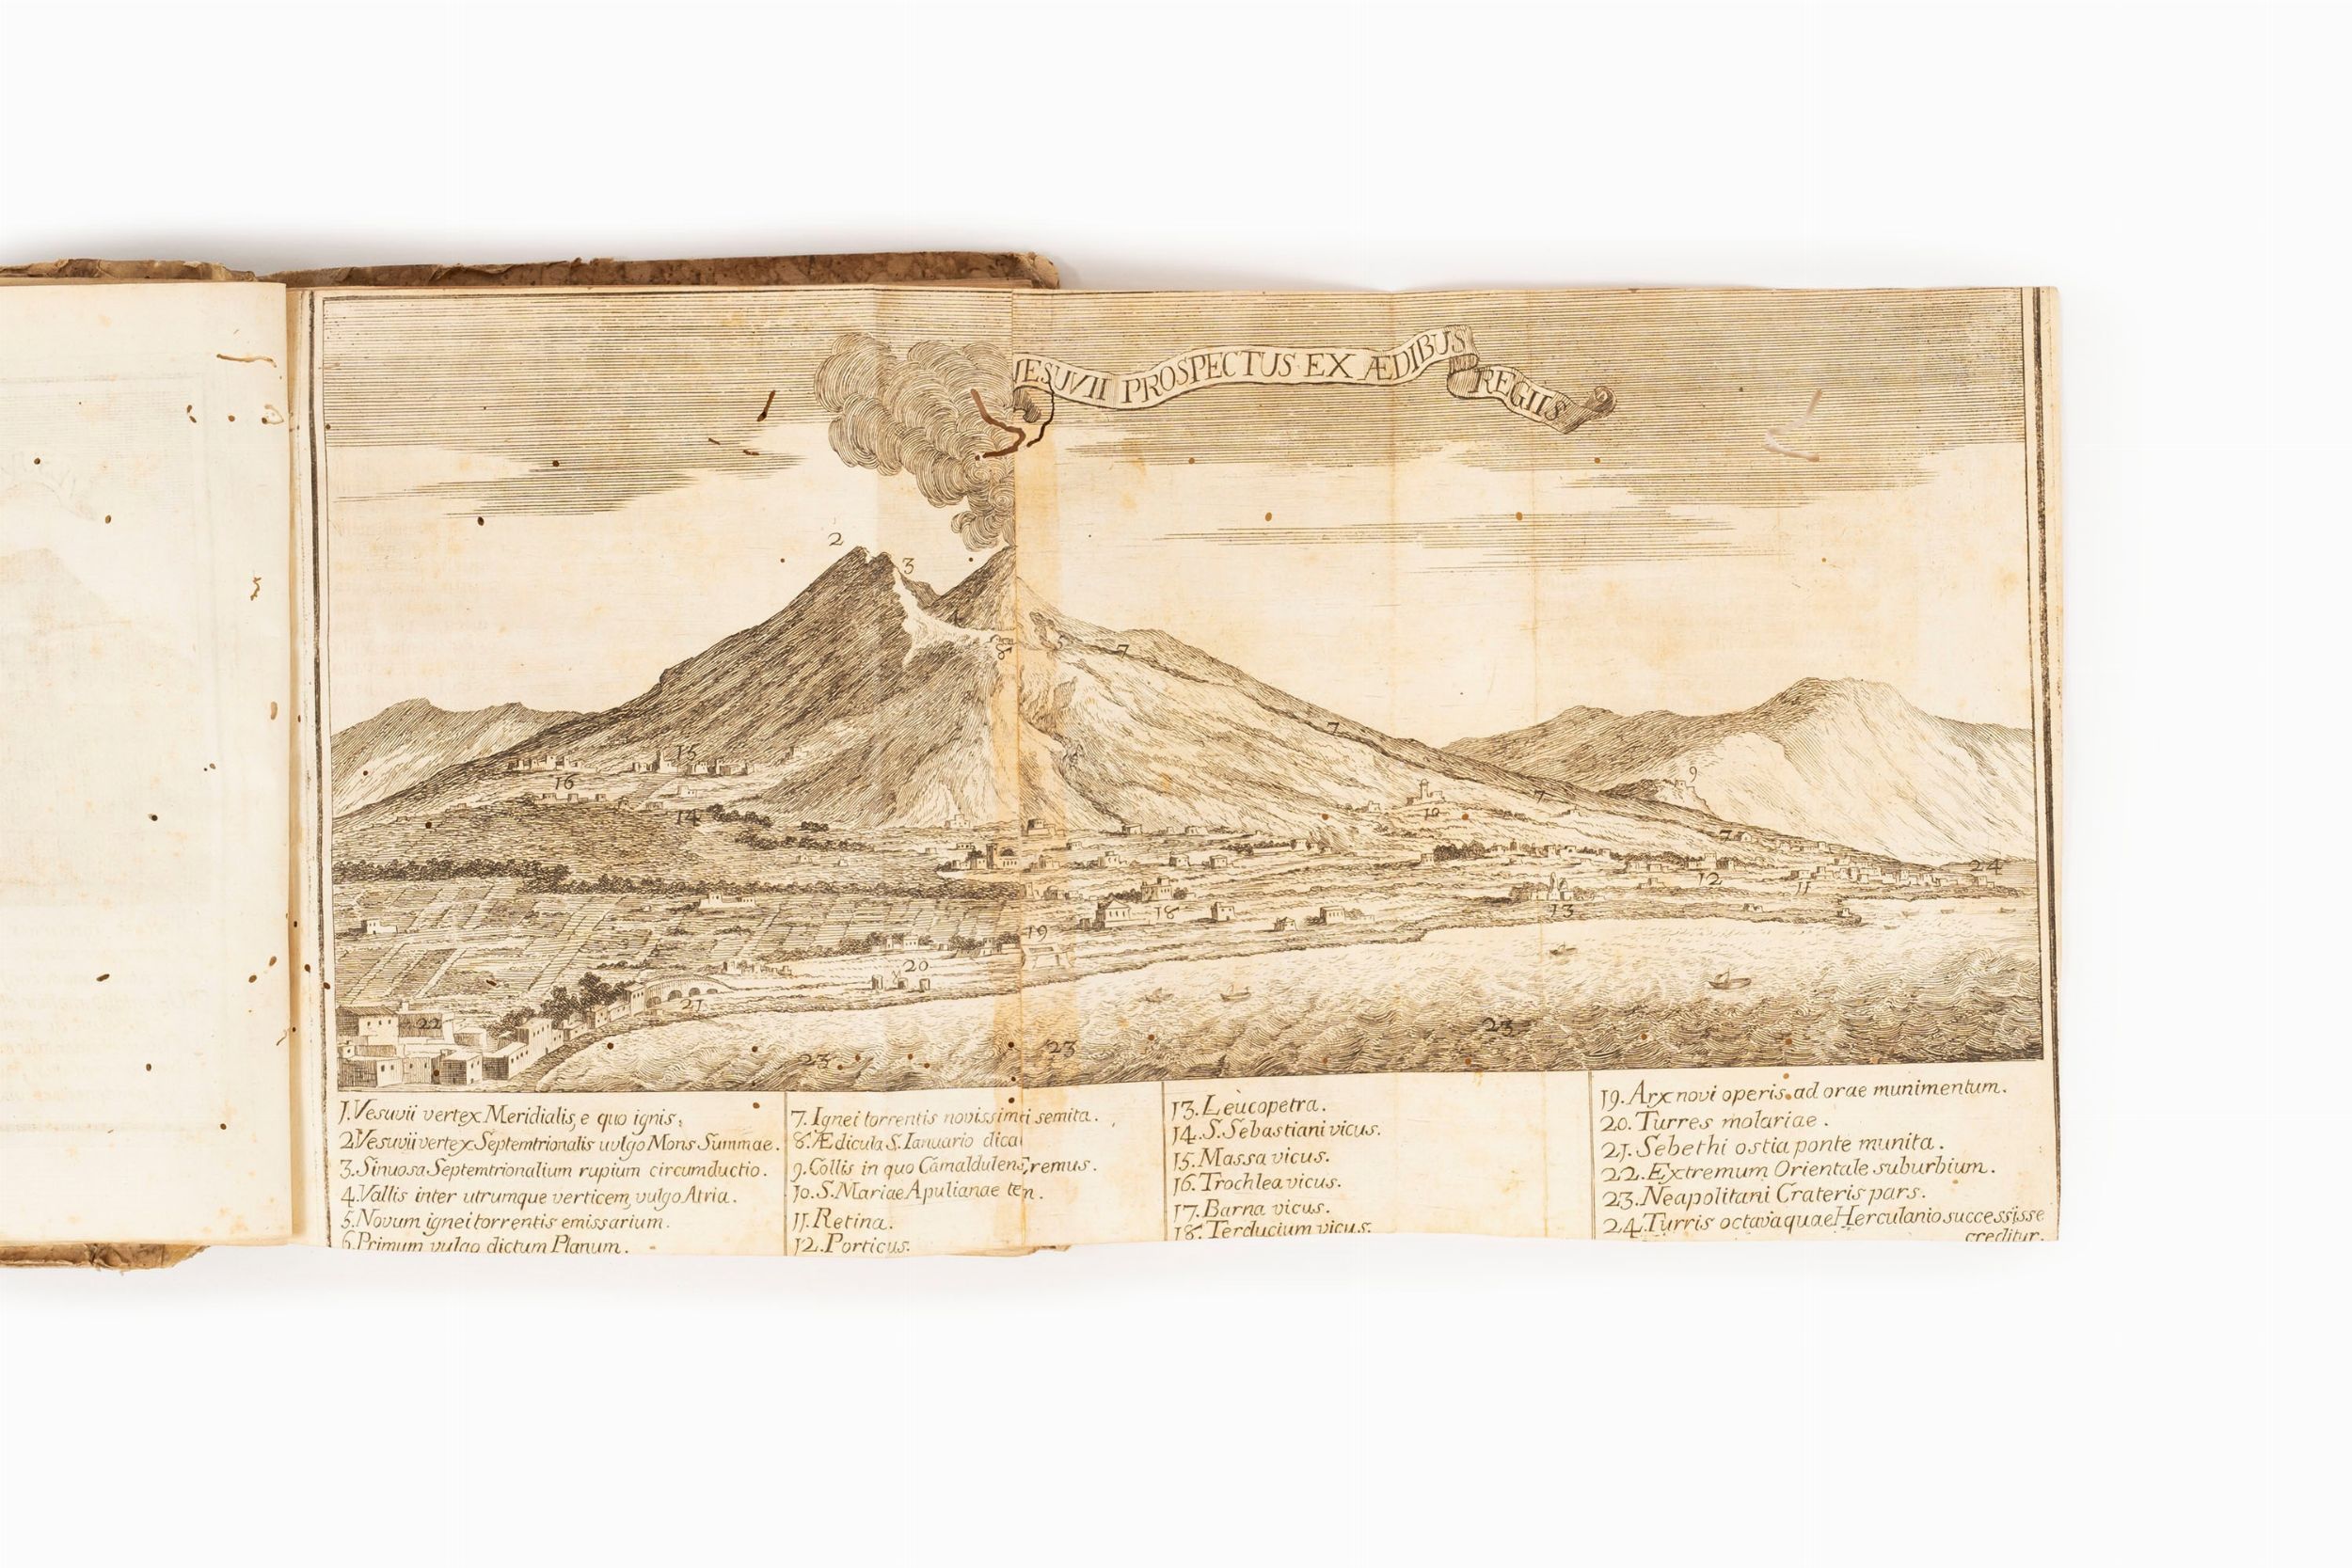 VESUVII PROSPECTUS EX ÆDIBUS REGIIS
2
3
8
5
7
7
15
16
14
9
7
10
7
24
12
11
13
18
19
20
21
22
23
23
23
1.Vesuvii vertex Meridialis, e quo ignis;
2.Vesuvii vertex Septemtrionalis uvlgo Mons Summae.
3.Sinuosa Septemtrionalium rupium circumductio.
4.Vallis inter utrumque verticem, vulgo Atria.
5.Novum ignei torrentis emissarium.
6.Primum vulgo dictum Planum.
7.Ignei torrentis novissimi semita.
8.Ædicula S. Ianuario dica
9.Collis in quo Camaldulens, remus.
10.S. Mariae Apulianae ten.
11.Retina.
12.Porticus.
13.Leucopetra.
14.S. Sebastiani vicus.
15.Massa vicus.
16.Trochlea vicus.
17.Barna vicus.
18.Terducium vicus.
19.Arx novi operis ad orae munimentum.
20.Turres molariae.
21.Sebethi ostia ponte munita.
22.Extremum Orientale suburbium.
23.Neapolitani Crateris pars.
24.Turris octava quae Herculanio successisse
creditur.